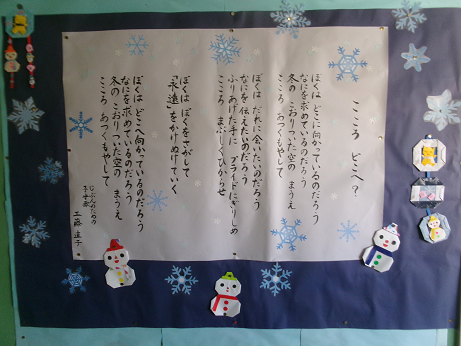 こころ どこへ?
ぼくは どこに向かっているのだろう
なにを求めているのだろう
冬の こおりついた空の まうえ
こころ あつくもやして
ぼくは だれに会いたいのだろう
なにを伝えたいのだろう
ふりあげた手に プライドにぎりしめ
こころ まぶしくひからせ
ぼくは ぼくをさがして
「永遠」をかけぬけていく
ぼくは どこへ向かっているのだろう
なにを求めているのだろう
冬の こおりついた空の まうえ
こころ あつくもやして
じぶんのための
工藤 直子